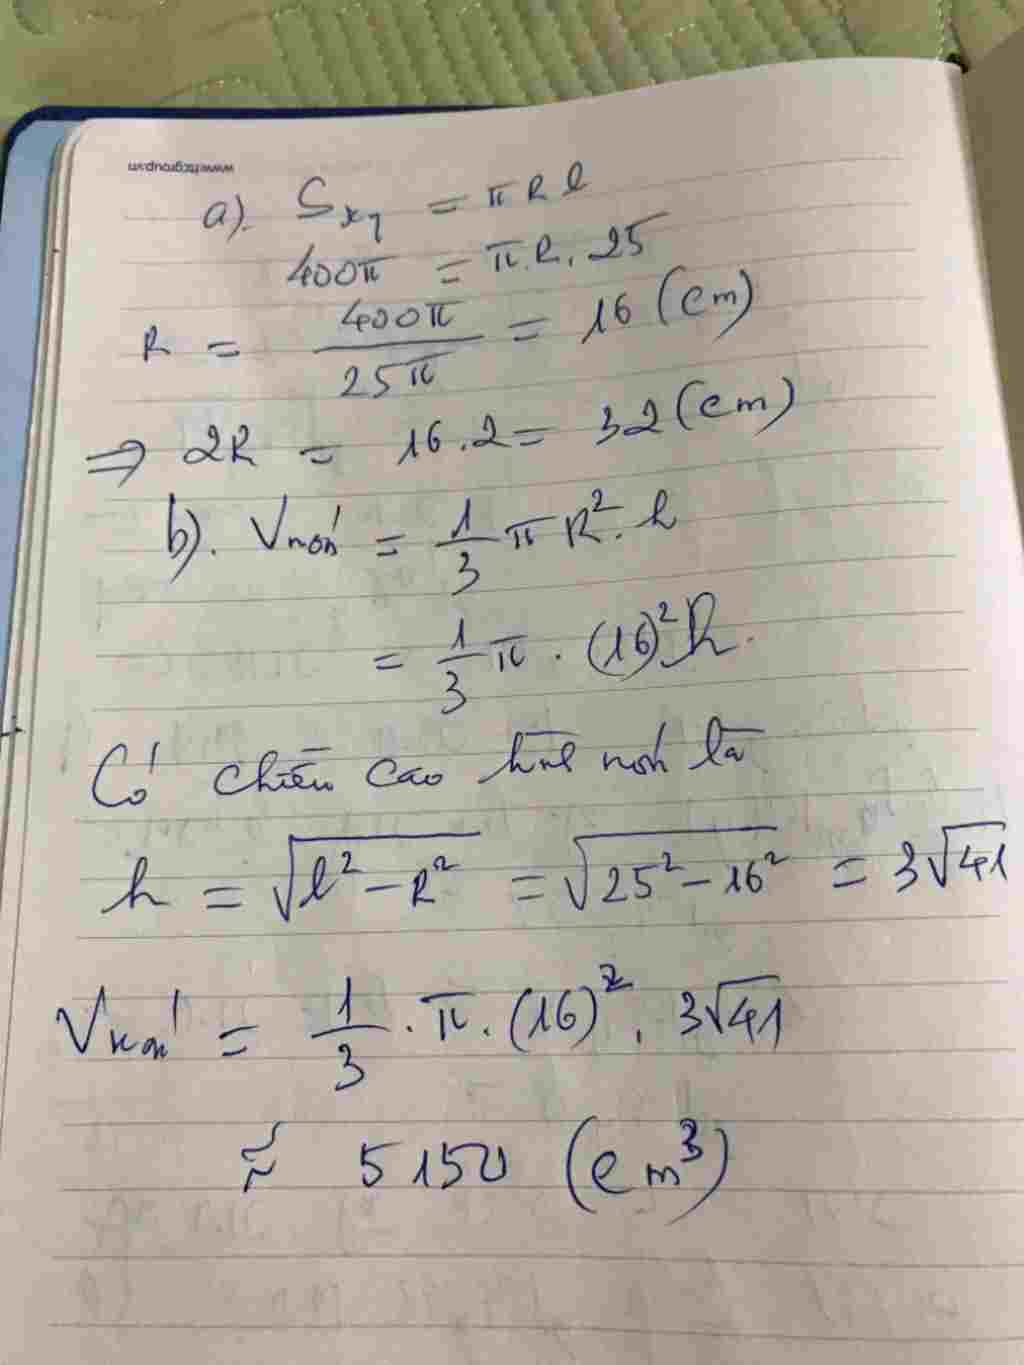 www.ttcgroup.vn
a). Sxq = πRl
400π = π.R.25
R = 400π/25π = 16 (cm)
⇒ 2R = 16.2 = 32 (cm)
b). Vnón = 1/3 πR².h
= 1/3 π.(16)²h.
Có chiều cao hình nón là
h = √(l² - R²) = √(25² - 16²) = 3√41
Vnón = 1/3 . π.(16)².3√41
≈ 5150 (cm³)